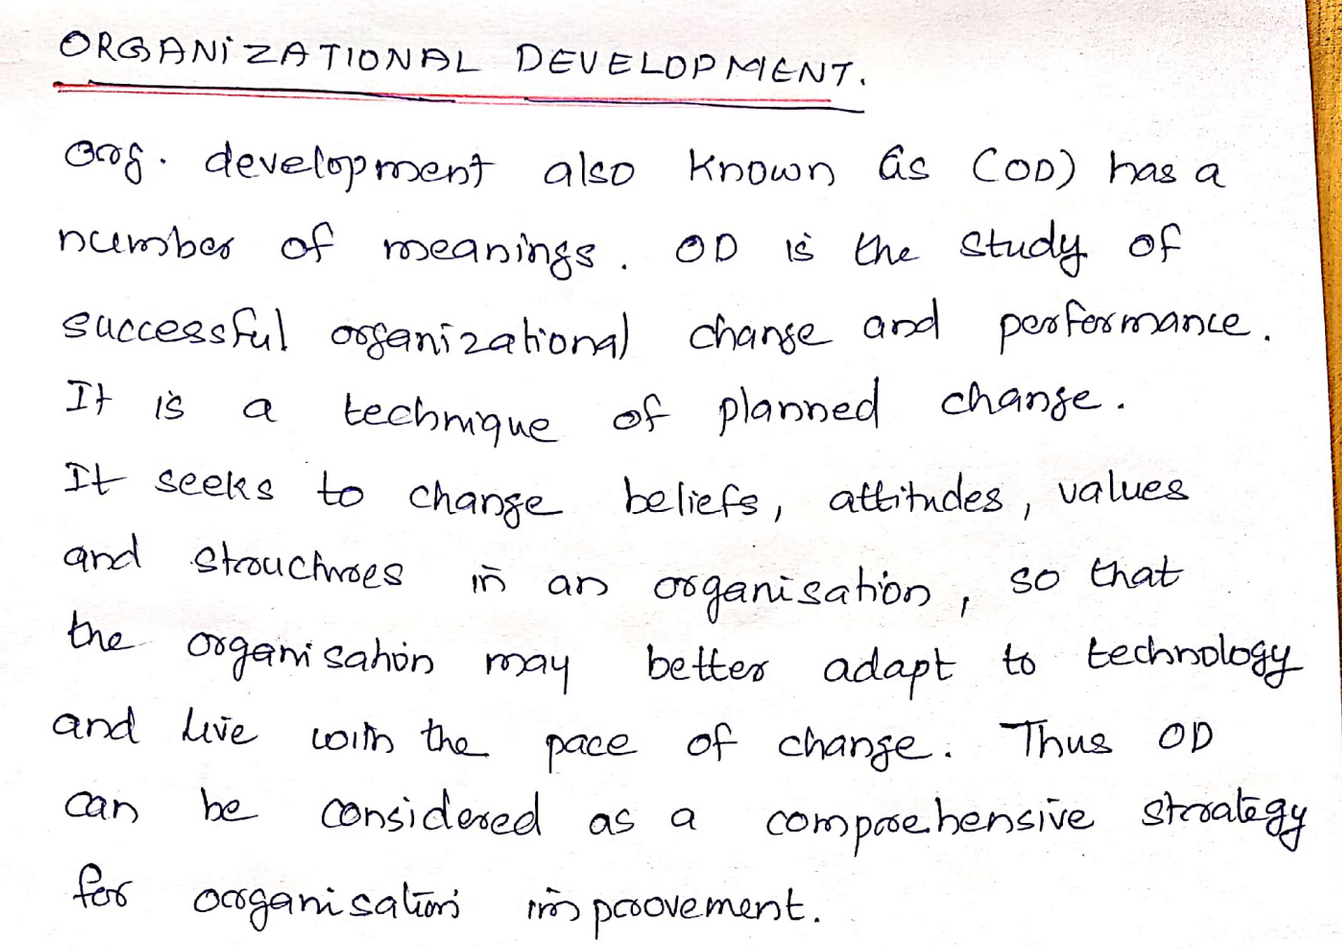 ORGANIZATIONAL DEVELOPMENT.
Org. development also known as (OD) has a
number of meanings. OD is the study of
successful organizational change and performance.
It is a technique of planned change.
It seeks to change beliefs, attitudes, values
and structures in an organisation, so that
the organisation may better adapt to technology
and live with the pace of change. Thus OD
can be considered as a comprehensive strategy
for organisation improvement.